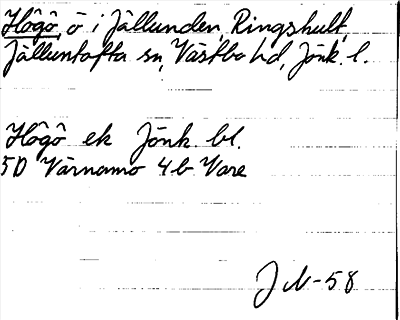 Högö, ö i Jällunden, Ringshult,
Jälluntofta sn, Västbo hd, Jönk. l.
Högö ek Jönk. bl.
5D Värnamo 4b Vare
J M-58